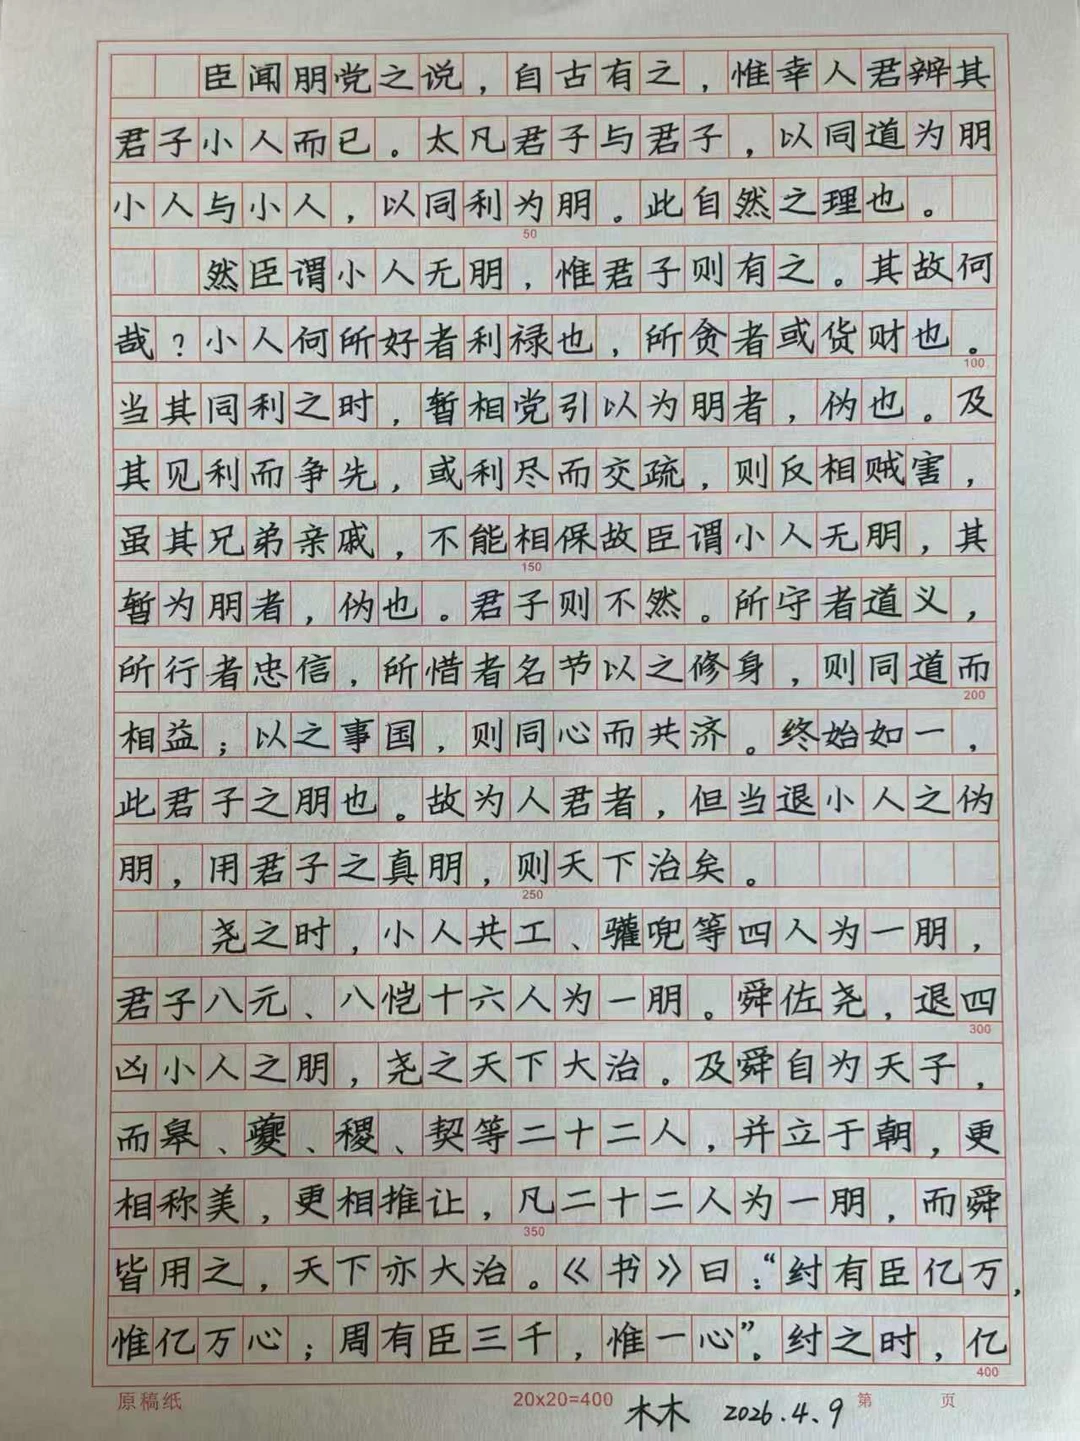 臣闻朋党之说，自古有之，惟幸人君辨其
君子小人而已。太凡君子与君子，以同道为朋
小人与小人，以同利为朋。此自然之理也。
50
然臣谓小人无朋，惟君子则有之。其故何
哉？小人何所好者利禄也，所贪者或货财也。
100
当其同利之时，暂相党引以为朋者，伪也。及
其见利而争先，或利尽而交疏，则反相贼害，
虽其兄弟亲戚，不能相保故臣谓小人无朋，其
150
暂为朋者，伪也。君子则不然。所守者道义，
所行者忠信，所惜者名节以之修身，则同道而
200
相益；以之事国，则同心而共济。终始如一，
此君子之朋也。故为人君者，但当退小人之伪
朋，用君子之真朋，则天下治矣。
250
尧之时，小人共工、驩兜等四人为一朋，
君子八元、八恺十六人为一朋。舜佐尧，退四
300
凶小人之朋，尧之天下大治。及舜自为天子，
而皋、夔、稷、契等二十二人，并立于朝，更
相称美，更相推让，凡二十二人为一朋，而舜
350
皆用之，天下亦大治。《书》曰：“纣有臣亿万，
惟亿万心；周有臣三千，惟一心”。纣之时，亿
400
原稿纸 20x20=400 第 页
木木 2026.4.9